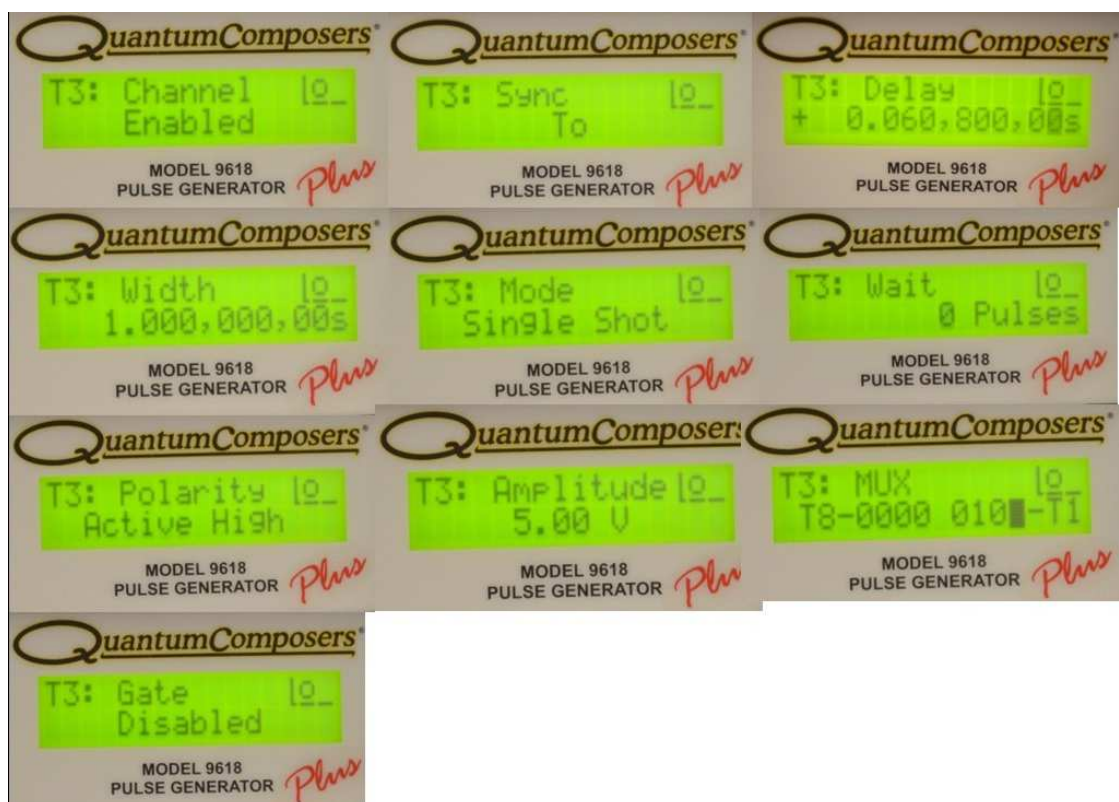 QuantumComposers
T3: Channel
Enabled
MODEL 9618
PULSE GENERATOR Plus
QuantumComposers
T3: Sync
To
MODEL 9618
PULSE GENERATOR Plus
QuantumComposers
T3: Delay
+ 0.060,800,00s
MODEL 9618
PULSE GENERATOR Plus
QuantumComposers
T3: Width
1.000,000,00s
MODEL 9618
PULSE GENERATOR Plus
QuantumComposers
T3: Mode
Single Shot
MODEL 9618
PULSE GENERATOR Plus
QuantumComposers
T3: Wait
0 Pulses
MODEL 9618
PULSE GENERATOR Plus
QuantumComposers
T3: Polarity
Active High
MODEL 9618
PULSE GENERATOR Plus
QuantumComposers
T3: Amplitude
5.00 V
MODEL 9618
PULSE GENERATOR Plu
QuantumComposers
T3: MUX
T8-0000 010 -T1
MODEL 9618
PULSE GENERATOR Plus
QuantumComposers
T3: Gate
Disabled
MODEL 9618
PULSE GENERATOR Plus